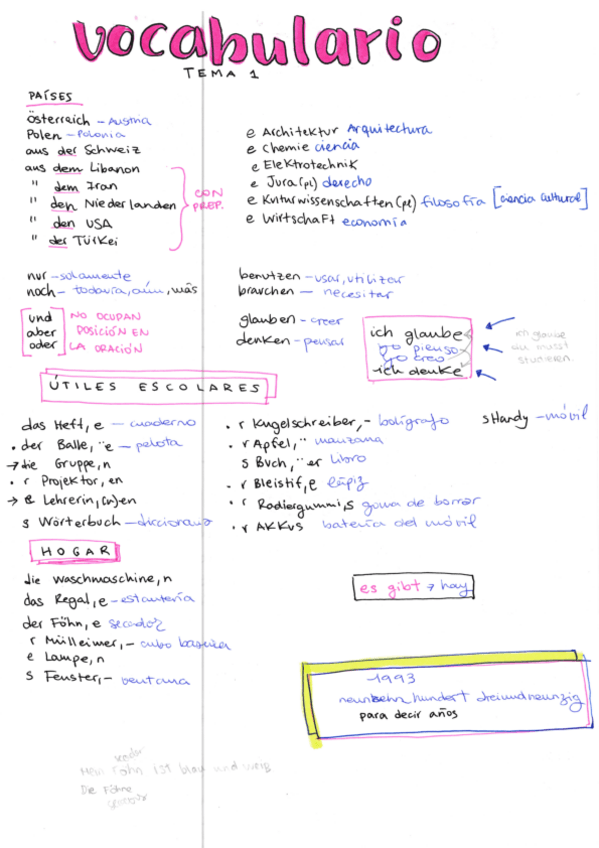 vocabulario
TEMA 1
PAÍSES
Österreich - Austria
Polen - Polonia
aus der Schweiz
aus dem Libanon
" dem Iran
" den Niederlanden
" den USA
" der Türkei
CON
PREP.
e Architektur Arquitectura
e chemie ciencia
e Elektrotechnik
e Jura (pl) derecho
e Kulturwissenschaften (pl) filosofía [ciencia cultural]
e Wirtschaft economía
nur - solamente
noch - todavía, aún, más
benutzen - usar, utilizar
brauchen - necesitar
und
aber
oder
NO OCUPAN
POSICIÓN EN
LA ORACIÓN
glauben - creer
denken - pensar
ich glaube
yo pienso
yo creo
ich denke
ich glaube
du musst
studieren
ÚTILES ESCOLARES
das Heft, e - cuaderno
. der Balle, ¨e - pelota
→ die Gruppe, n
. r Projektor, en
→ e Lehrerin, (n)en
s Wörterbuch - diccionario
. r Kugelschreiber, - bolígrafo
. r Apfel, ¨ manzana
s Buch, ¨er libro
. r Bleistif, e lápiz
. r Radiergummi, s goma de borrar
. r AKKUs batería del móvil
s Handy - móvil
HOGAR
die Waschmaschine, n
das Regal, e - estantería
der Föhn, e secador
r Mülleimer, - cubo basura
e Lampe, n
s Fenster, - ventana
es gibt → hay
1993
neunzehn hundert dreiundneunzig
para decir años
secador
Mein Föhn ist blau und weiß
Die Föhne